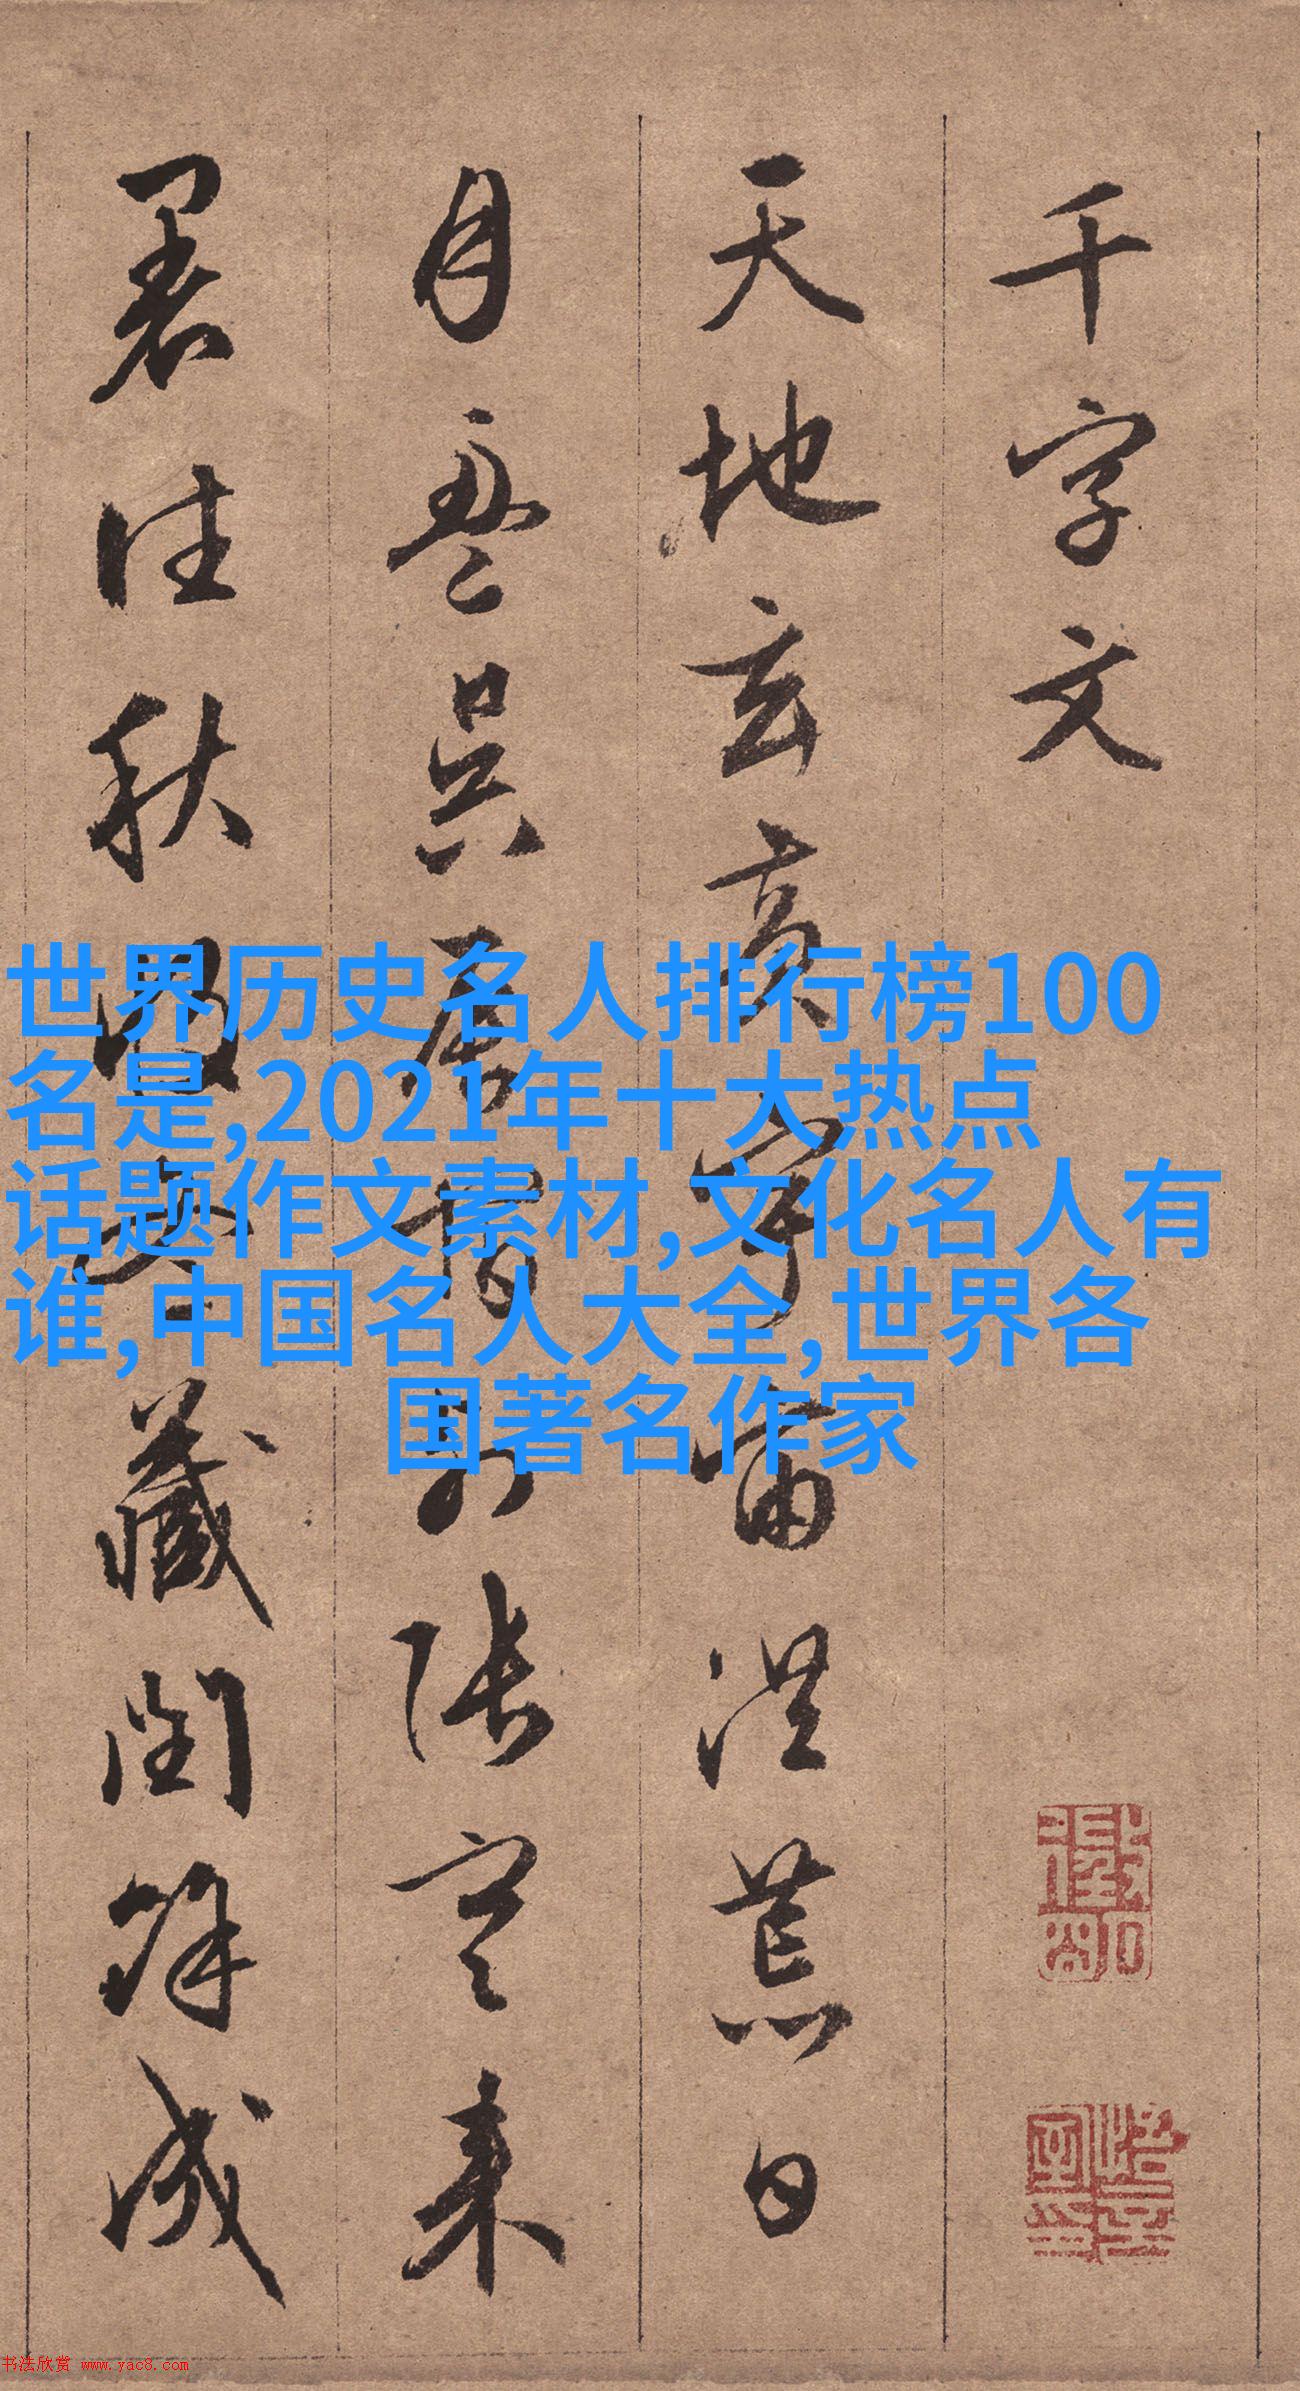 千字文
天地玄黄宇宙洪荒日
月盈昃辰宿列張寒来
暑往秋收冬藏閏餘成
世界历史名人排行榜100
名是,2021年十大热点
话题作文素材,文化名人有
谁,中国名人大全,世界各
国著名作家
书法欣赏 www.yac8.com